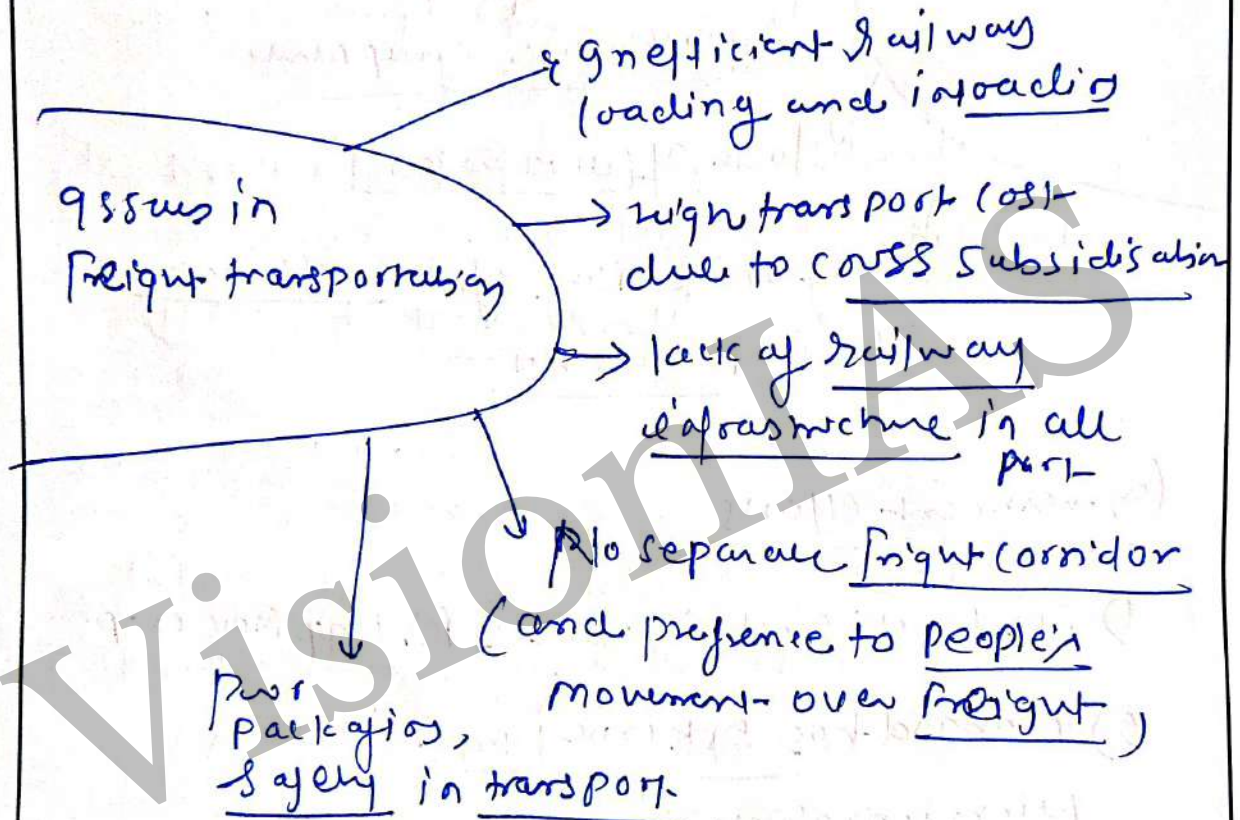 Issues in
freight transportation
Inefficient railway
loading and inloading
→ high transport cost
due to cross subsidisation
→ lack of railway
infrastructure in all
part
No separate freight corridor
(and prefrence to people's
movement over freight)
Poor
packaging,
safety in transport.
VisionIAS